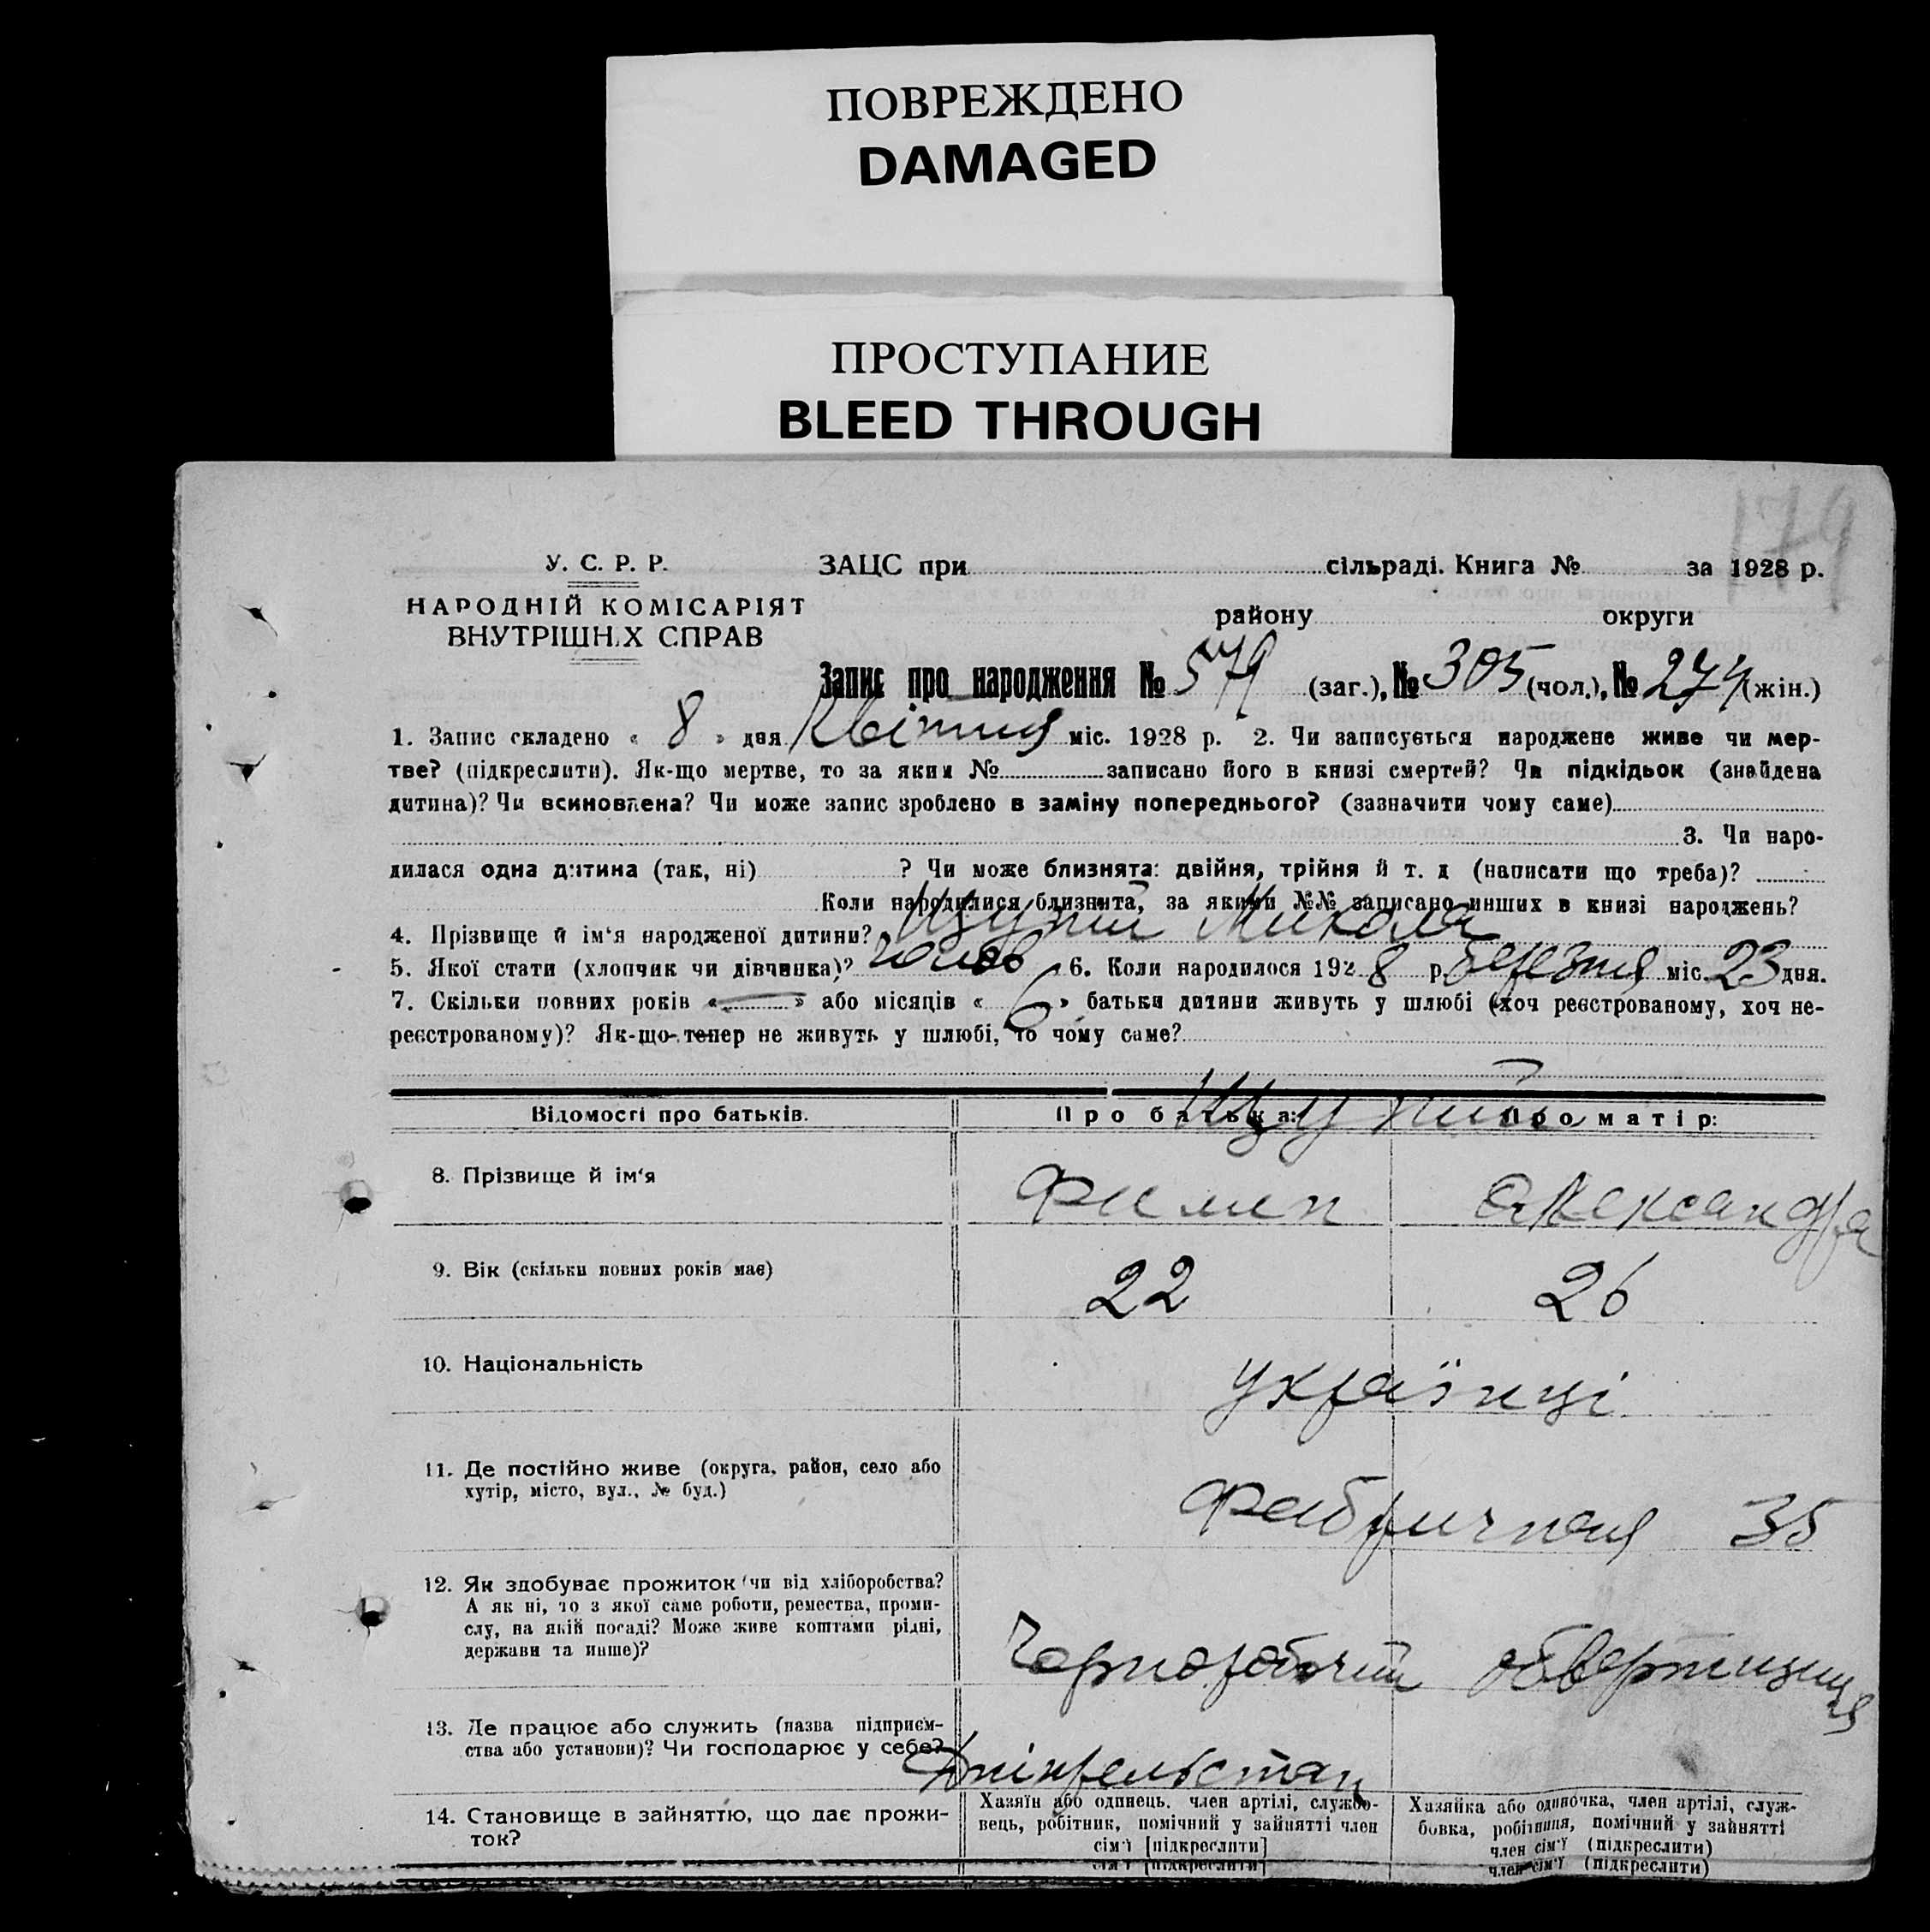 ПОВРЕЖДЕНО
DAMAGED
ПРОСТУПАНИЕ
BLEED THROUGH
179
У. С. Р. Р.
НАРОДНІЙ КОМІСАРІЯТ
ВНУТРІШН.Х СПРАВ
ЗАЦС при сільраді. Книга № за 1928 р.
району округи
Запис про народження № 579 (заг.), № 305 (чол.), № 274 (жін.)
1. Запис складено « 8 » дня Квітня міс. 1928 р. 2. Чи записується народжене живе чи мер-
тве? (підкреслити). Як-що мертве, то за яким № записано його в книзі смертей? Чи підкідьок (знайдена
дитина)? Чи всиновлена? Чи може запис зроблено в заміну попереднього? (зазначити чому саме)
3. Чи наро-
дилася одна дитина (так, ні) ? Чи може близнята: двійня, трійня й т. д (написати що треба)?
Коли народилися близнята, за якими №№ записано инших в книзі народжень?
4. Прізвище й ім‘я народженої дитини? Цупій Микола
5. Якої стати (хлопчик чи дівчинка)? 6. Коли народилося 1928 р. березня міс. 23 дня.
7. Скільки повних років « — » або місяців « 6 » батьки дитини живуть у шлюбі (хоч реєстрованому, хоч не-
реєстрованому)? Як-що тепер не живуть у шлюбі, то чому саме?
Відомості про батьків. Про батька: Про матір:
8. Прізвище й ім‘я Филип Александра
9. Вік (скільки повних років має) 22 26
10. Національність Українці
11. Де постійно живе (округа, район, село або
хутір, місто, вул., № буд.) Фабричная 35
12. Як здобуває прожиток (чи від хліборобства?
А як ні, то з якої саме роботи, ремества, проми-
слу, на якій посаді? Може живе коштами рідні,
держави та инше)? Чорноробочий
13. Де працює або служить (назва підприєм-
ства або установи)? Чи господарює у себе?
14. Становище в зайняттю, що дає прожи-
ток?
Хазяїн або одинець, член артілі, службо-
вець, робітник, помічний у зайнятті член
сім‘ї [підкреслити]
сім‘ї [підкреслити]
Хазяйка або одиночка, член артілі, служ-
бовка, робітниця, помічний у зайнятті
член сім‘ї (підкреслити)
член сім‘ї (підкреслити)